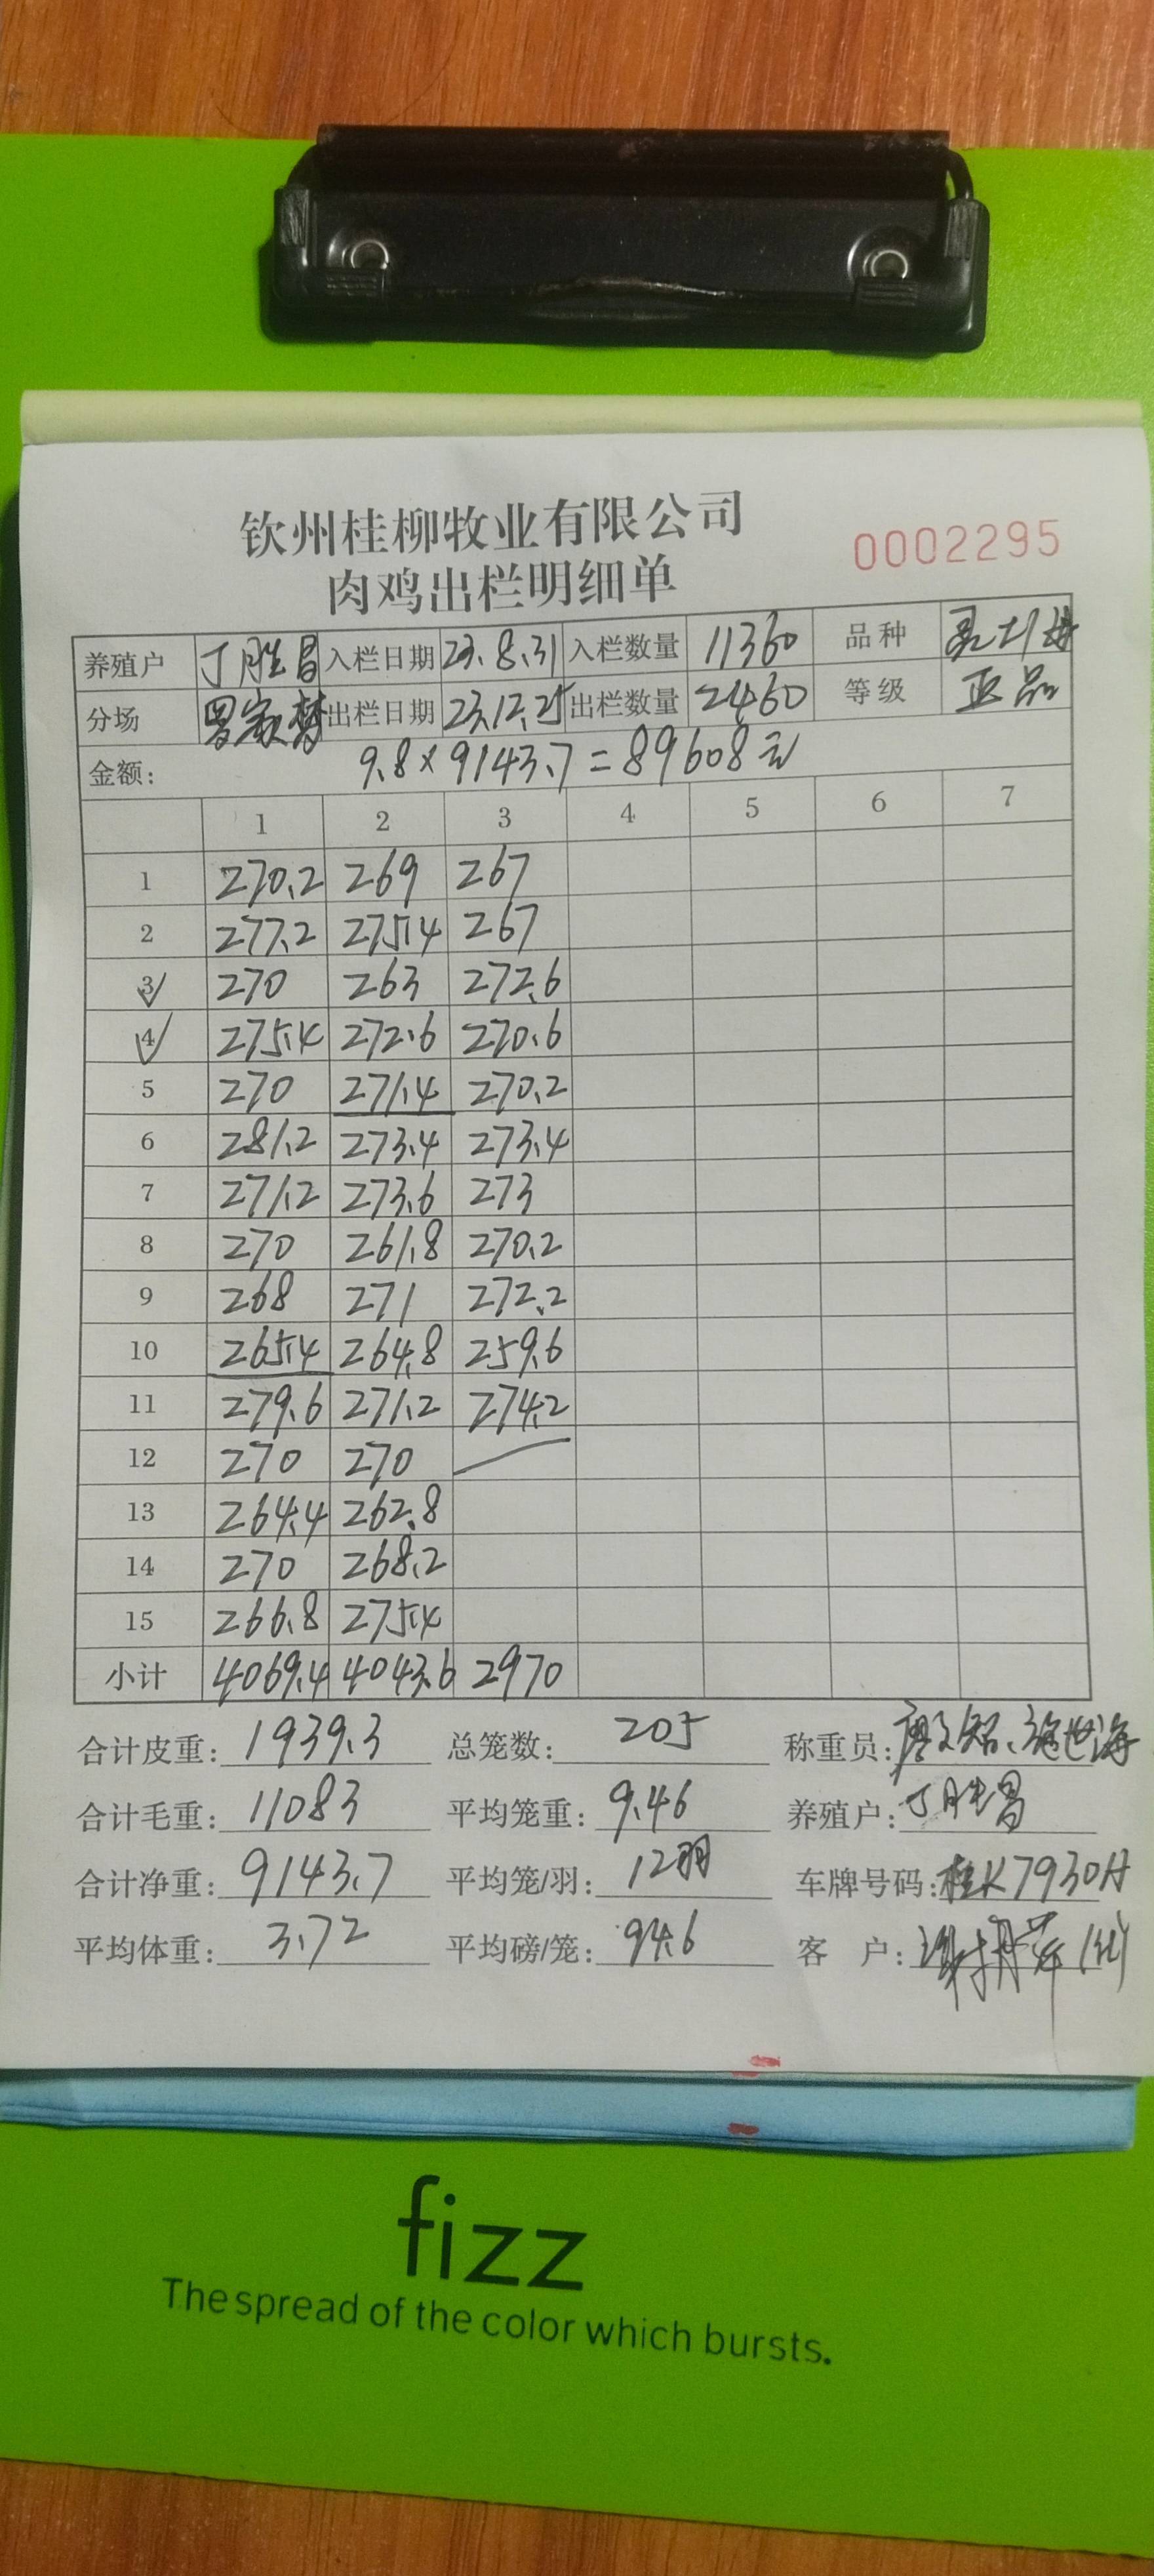 钦州桂柳牧业有限公司
肉鸡出栏明细单
0002295
养殖户 丁胜昌 入栏日期 23.8.31 入栏数量 11360 品种
分场 出栏日期 23.12.25 出栏数量 2460 等级 正品
金额: 9.8×9143.7=89608元
1 2 3 4 5 6 7
1 270.2 269 267
2 277.2 275.4 267
3 270 263 272.6
4 275.4 272.6 270.6
5 270 271.4 270.2
6 281.2 273.4 273.4
7 271.2 273.6 273
8 270 261.8 270.2
9 268 271 272.2
10 265.4 264.8 259.6
11 279.6 271.2 274.2
12 270 270
13 264.4 262.8
14 270 268.2
15 266.8 275.4
小计 4069.4 4043.6 2970
合计皮重: 1939.3 总笼数: 205 称重员: 廖文智、施世海
合计毛重: 11083 平均笼重: 9.46 养殖户: 丁胜昌
合计净重: 9143.7 平均笼/羽: 12羽 车牌号码: 桂K7930H
平均体重: 3.72 平均磅/笼: 94.6 客 户:
fizz
The spread of the color which bursts.